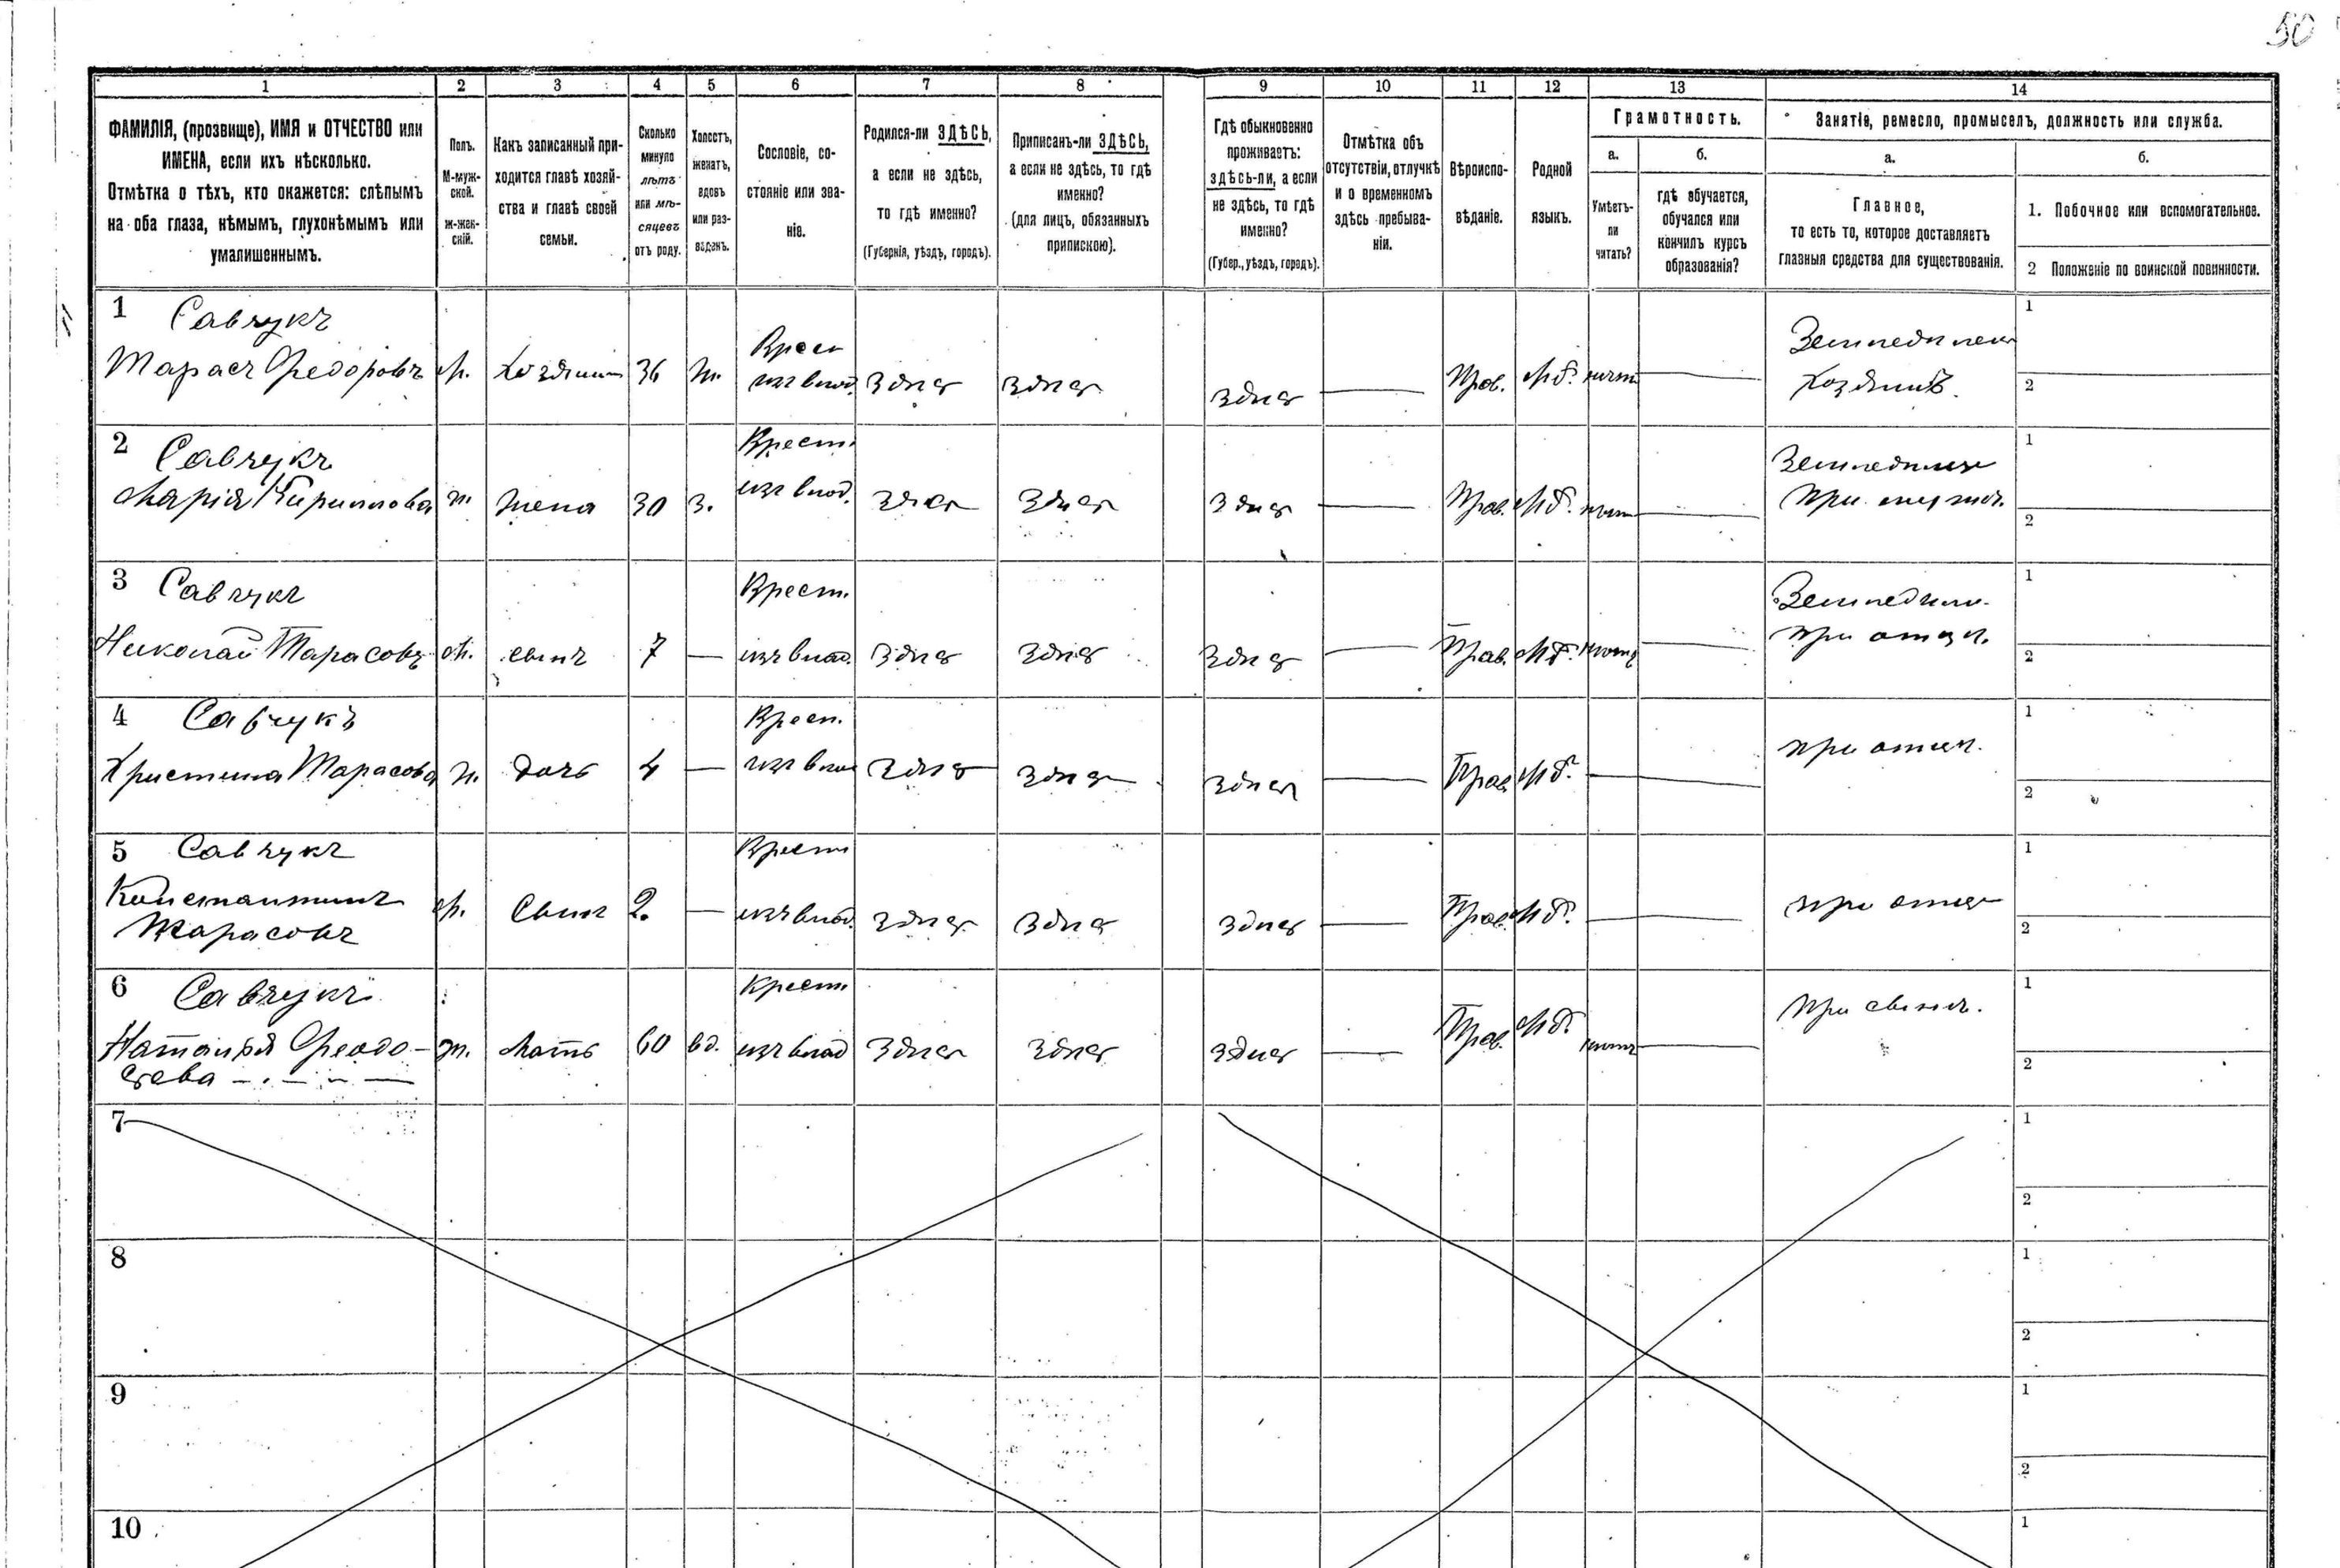 50
1 2 3 4 5 6 7 8 9 10 11 12 13 14
ФАМИЛІЯ, (прозвище), ИМЯ и ОТЧЕСТВО или
ИМЕНА, если ихъ нѣсколько.
Отмѣтка о тѣхъ, кто окажется: слѣпымъ
на оба глаза, нѣмымъ, глухонѣмымъ или
умалишеннымъ.
Полъ.
М-муж-
ской.
ж-жен-
скій.
Какъ записанный при-
ходится главѣ хозяй-
ства и главѣ своей
семьи.
Сколько
минуло
лѣтъ
или мѣ-
сяцевъ
отъ роду.
Холостъ,
женатъ,
вдовъ
или раз-
веденъ.
Сословіе, со-
стояніе или зва-
ніе.
Родился-ли ЗДѢСЬ,
а если не здѣсь,
то гдѣ именно?
(Губернія, уѣздъ, городъ).
Приписанъ-ли ЗДѢСЬ,
а если не здѣсь, то гдѣ
именно?
(для лицъ, обязанныхъ
припискою).
Гдѣ обыкновенно
проживаетъ:
здѣсь-ли, а если
не здѣсь, то гдѣ
именно?
(Губер., уѣздъ, городъ).
Отмѣтка объ
отсутствіи, отлучкѣ
и о временномъ
здѣсь пребыва-
ніи.
Вѣроиспо-
вѣданіе.
Родной
языкъ.
Грамотность.
а.
Умѣетъ-
ли
читать?
б.
гдѣ обучается,
обучался или
кончилъ курсъ
образованія?
Занятіе, ремесло, промыселъ, должность или служба.
а.
Главное,
то есть то, которое доставляетъ
главныя средства для существованія.
б.
1. Побочное или вспомогательное.
2 Положеніе по воинской повинности.
1 Савчукъ
Тарасъ Федоровъ м. Хозяинъ 36 ж. Крест. изъ влад. здѣсь здѣсь здѣсь — Прав. Мб. нѣтъ —
Хозяинъ.
1
2
2 Савчукъ
Марія Кирилловa ж. жена 30 з. Крест. изъ влад. здѣсь здѣсь здѣсь — Прав. Мб. нѣтъ —
при мужѣ.
1
2
3 Савчукъ
Николай Тарасовъ м. сынъ 7 — Крест. изъ влад. здѣсь здѣсь здѣсь — Прав. Мб. нѣтъ —
при отцѣ.
1
2
4 Савчукъ
Христина Тарасова ж. дочь 4 — Крест. изъ влад. здѣсь здѣсь здѣсь — Прав. Мб. —
при отцѣ.
1
2
5 Савчукъ
Константинъ
Тарасовъ м. Сынъ 2. — Крест. изъ влад. здѣсь здѣсь здѣсь — Прав. Мб. —
при отцѣ
1
2
6 Савчукъ
Наталья Феодо-
сьева ж. Мать 60 вд. Крест. изъ влад. здѣсь здѣсь здѣсь — Прав. Мб. нѣтъ —
при сынѣ.
1
2
7
1
2
8
1
2
9
1
2
10
1